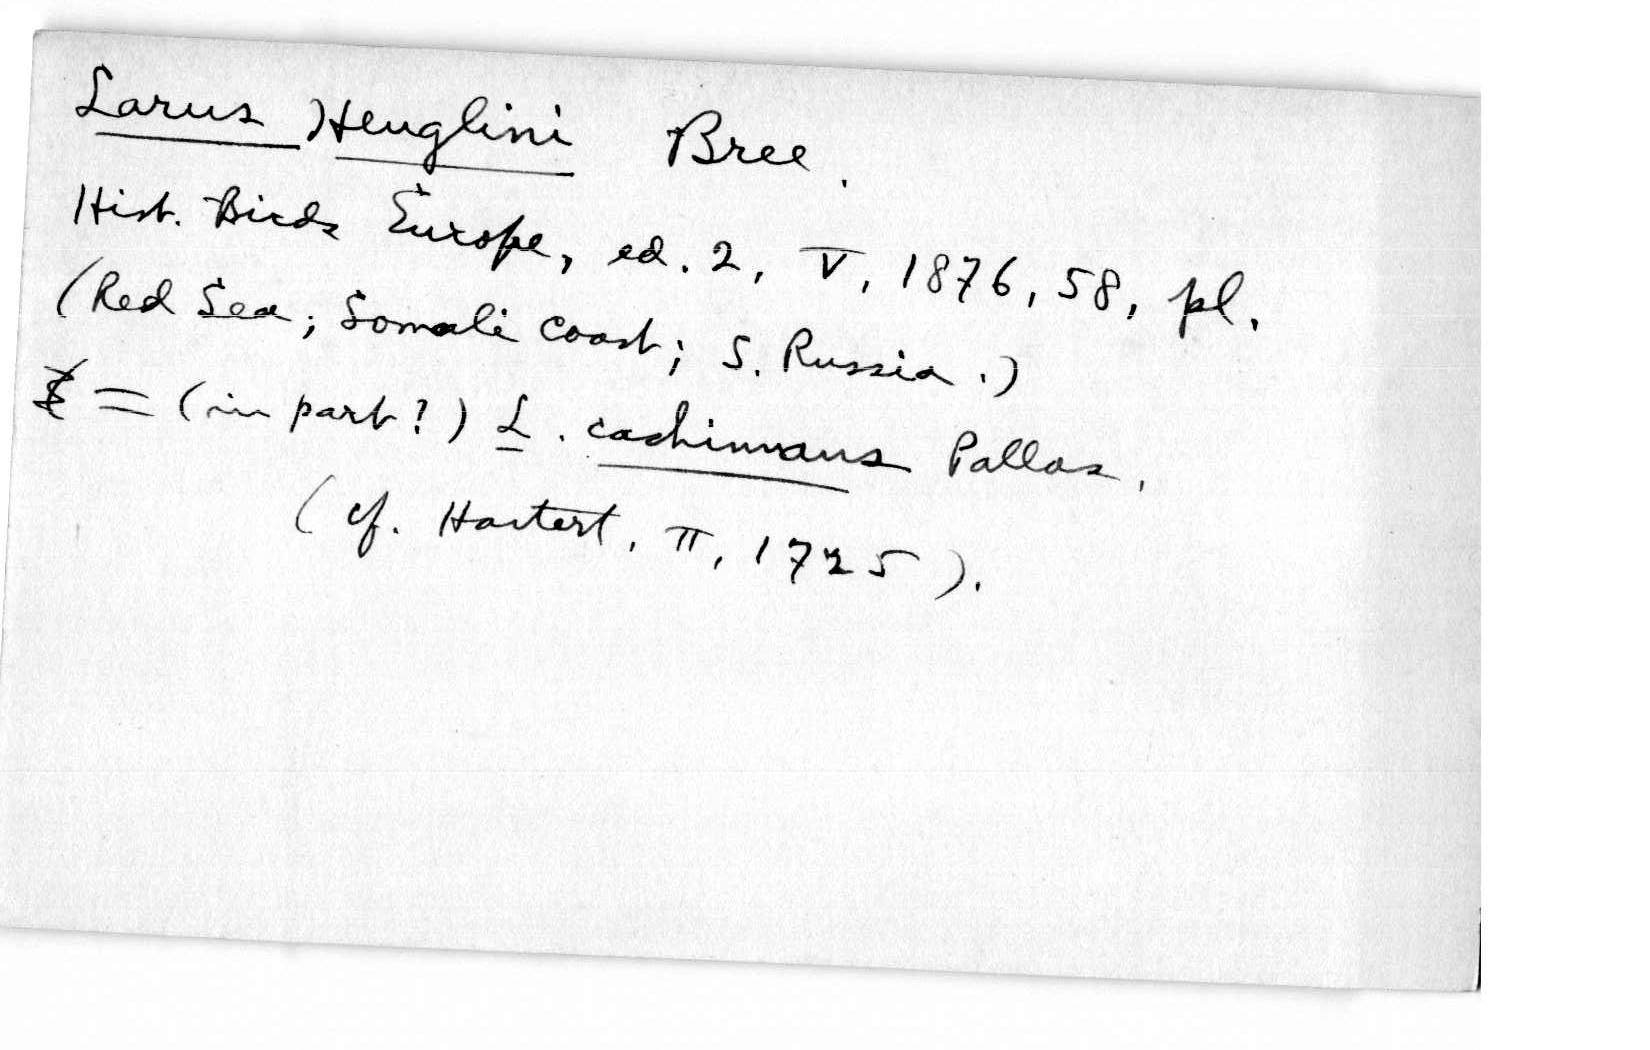 Larus Heuglini Bree.
Hist. Birds Europe, ed. 2, V, 1876, 58, pl.
(Red Sea; Somali coast; S. Russia.)
= (in part?) L. cachinnans Pallas,
(cf. Hartert, II, 1725).